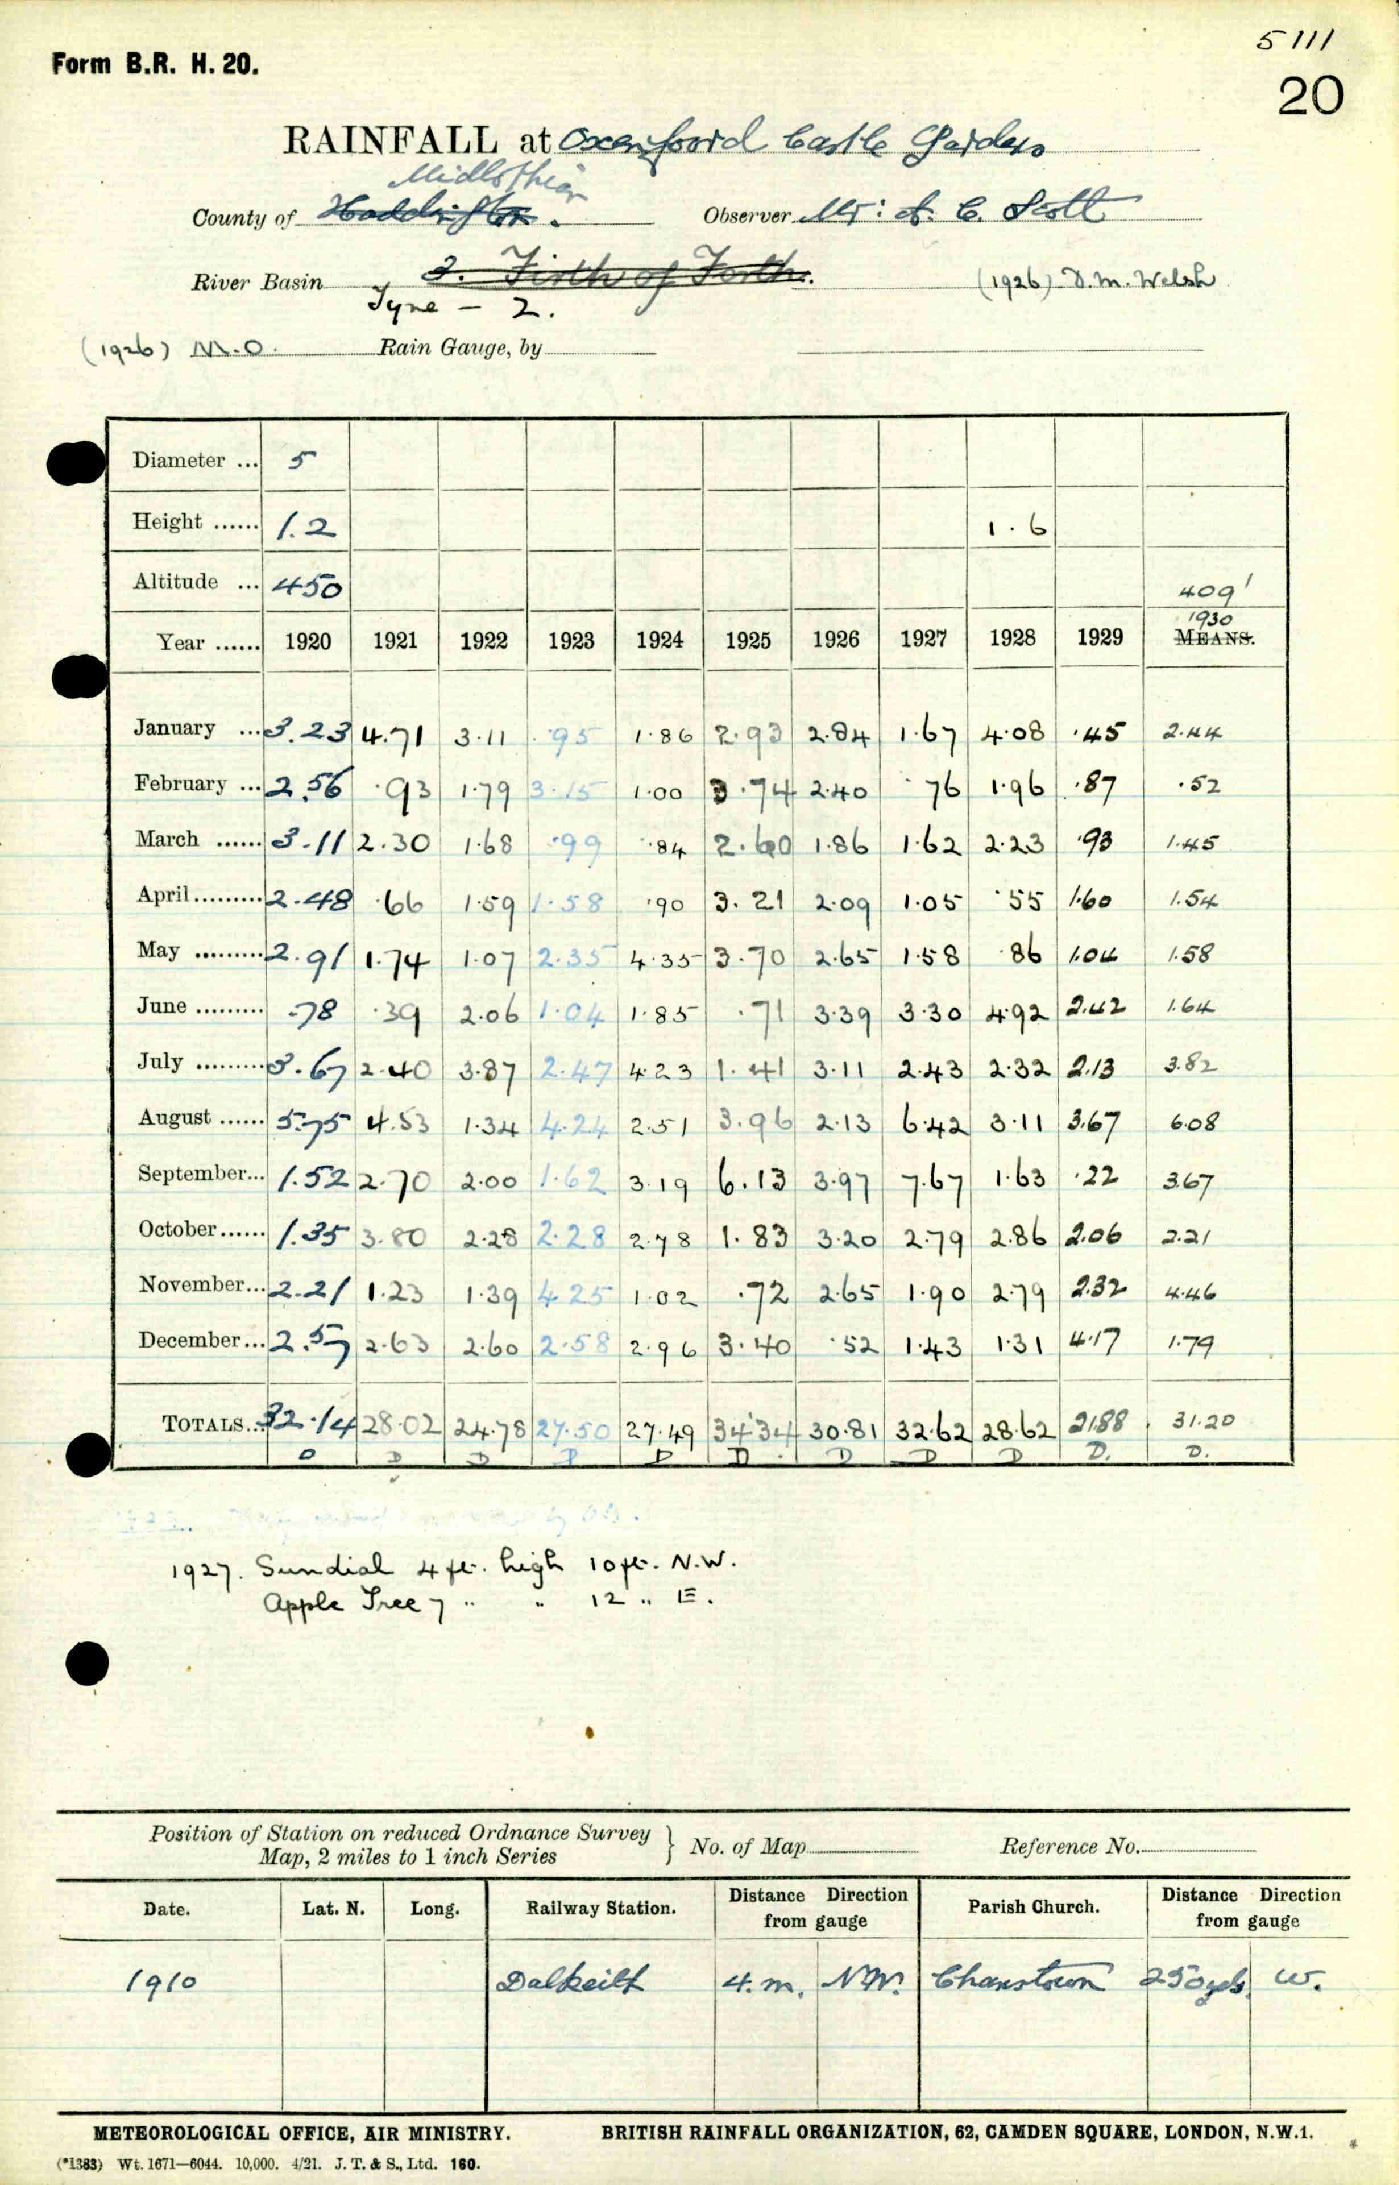 5111
Form B.R. H. 20.
20
RAINFALL at Oxenfoord Castle Gardens
Midlothian
County of Haddington. Observer Mr: A. C. Scott
River Basin 2. Firth of Forth. (1926) D.M. Welsh
Tyne - 2.
(1926) M.O. Rain Gauge, by
Diameter ... 5
Height ...... 1.2 1.6
Altitude ... 450 409'
1930
Year ...... 1920 1921 1922 1923 1924 1925 1926 1927 1928 1929 MEANS.
January ... 3.23 4.71 3.11 .95 1.86 2.93 2.84 1.67 4.08 .45 2.44
February ... 2.56 .93 1.79 3.15 1.00 3.74 2.40 .76 1.96 .87 .52
March ...... 3.11 2.30 1.68 .99 .84 2.60 1.86 1.62 2.23 .93 1.45
April......... 2.48 .66 1.59 1.58 .90 3.21 2.09 1.05 .55 1.60 1.54
May ......... 2.91 1.74 1.07 2.35 4.35 3.70 2.65 1.58 .86 1.04 1.58
June ......... .78 .39 2.06 1.04 1.85 .71 3.39 3.30 4.92 2.42 1.64
July ......... 3.67 2.40 3.87 2.47 4.23 1.41 3.11 2.43 2.32 2.13 3.82
August ...... 5.75 4.53 1.34 4.24 2.51 3.96 2.13 6.42 3.11 3.67 6.08
September... 1.52 2.70 2.00 1.62 3.19 6.13 3.97 7.67 1.63 .22 3.67
October...... 1.35 3.80 2.28 2.28 2.78 1.83 3.20 2.79 2.86 2.06 2.21
November... 2.21 1.23 1.39 4.25 1.02 .72 2.65 1.90 2.79 2.32 4.46
December... 2.57 2.63 2.60 2.58 2.96 3.40 .52 1.43 1.31 4.17 1.79
TOTALS... 32.14 28.02 24.78 27.50 27.49 34.34 30.81 32.62 28.62 21.88 31.20
D D D D D D D D D D. D.
1927. Sundial 4 ft. high 10 ft. N.W.
Apple Tree 7 " " 12 " E.
Position of Station on reduced Ordnance Survey
Map, 2 miles to 1 inch Series } No. of Map Reference No.
Date. Lat. N. Long. Railway Station. Distance Direction from gauge Parish Church. Distance Direction from gauge
1910 Dalkeith 4.m. NW. 250yds. W.
METEOROLOGICAL OFFICE, AIR MINISTRY. BRITISH RAINFALL ORGANIZATION, 62, CAMDEN SQUARE, LONDON, N.W.1.
(*1383) Wt. 1671—6044. 10,000. 4/21. J. T. & S., Ltd. 160.